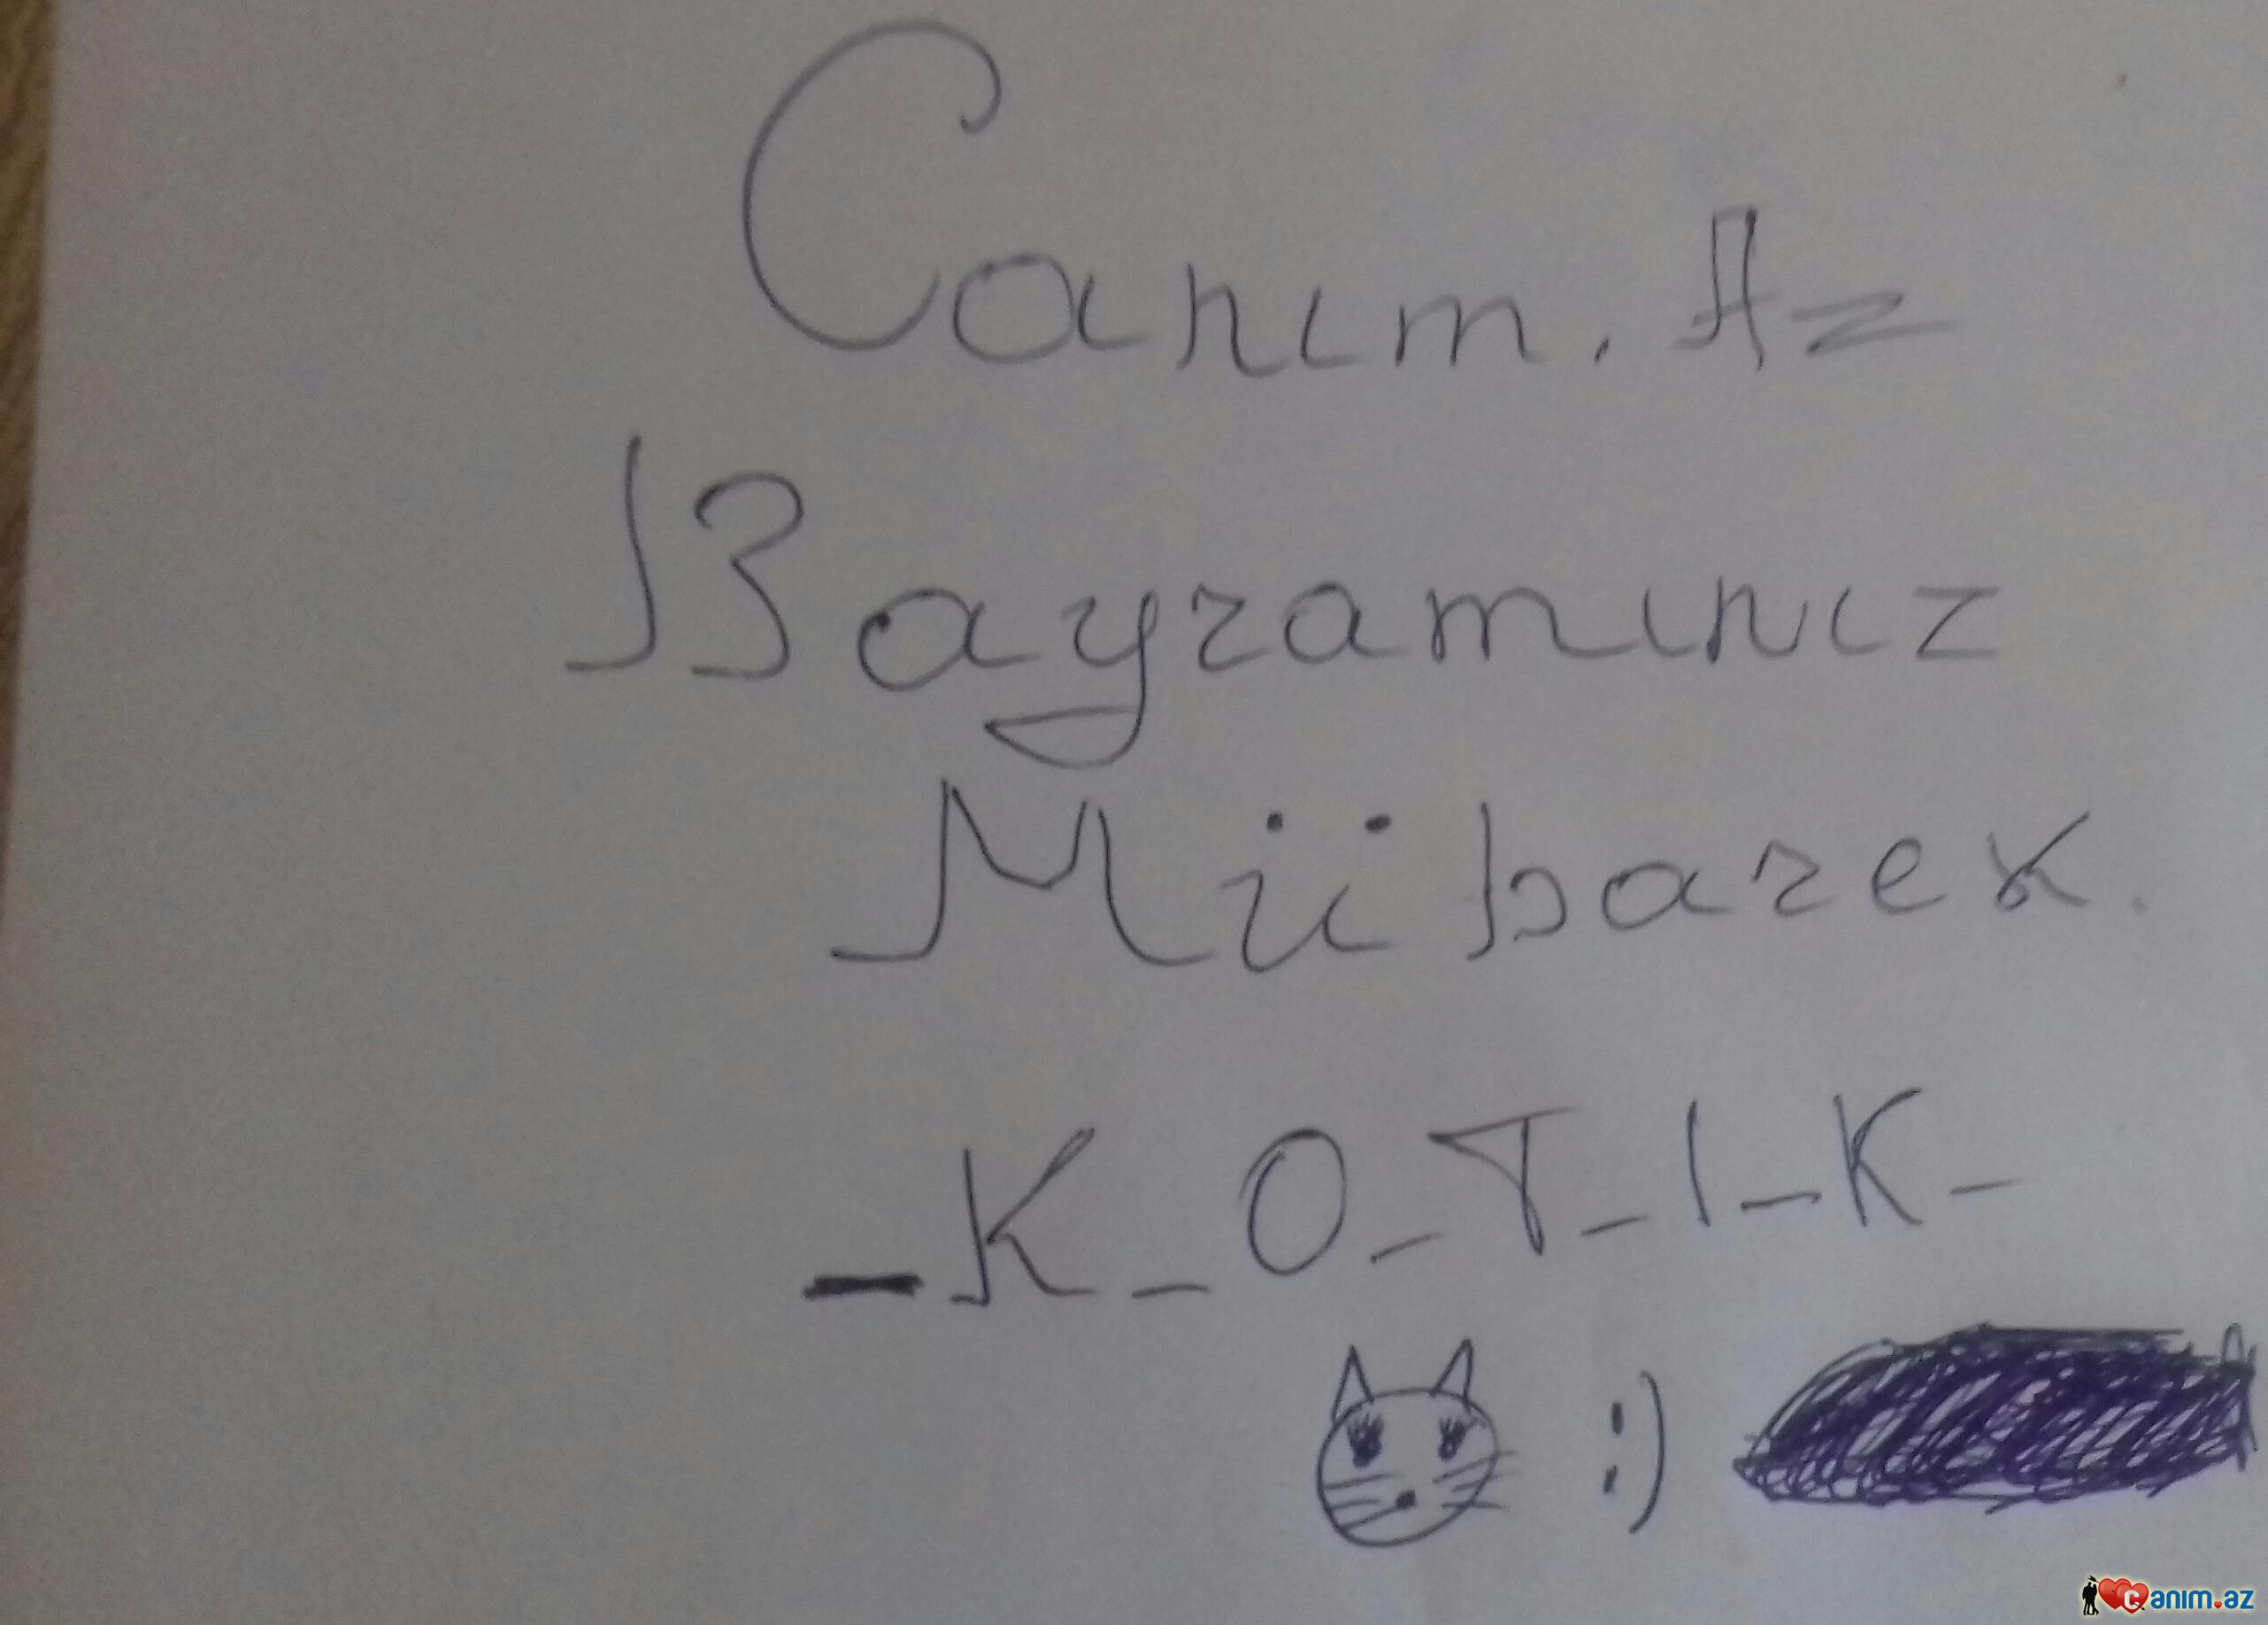 Canım.Az
Bayramınız
Mübarek.
_K_O_T_I_K_
:)
Canim.az